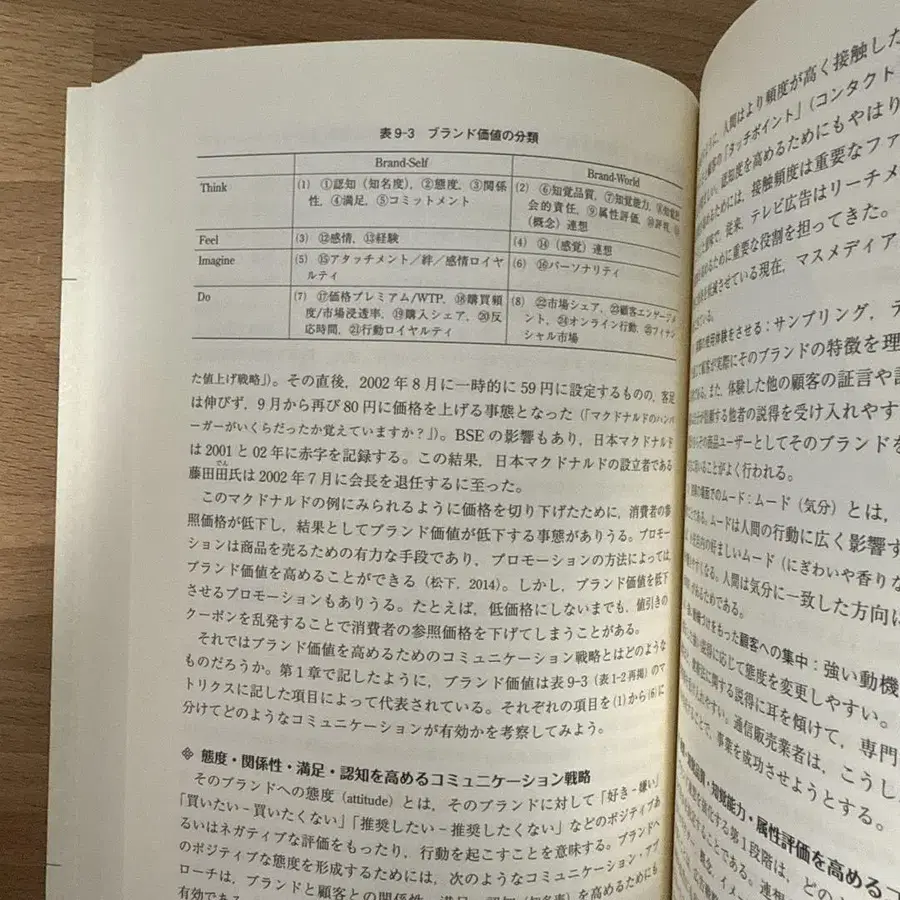 表9-3 ブランド価値の分類
Brand-Self
Brand-World
Think
(1) ①認知(知名度),②態度,③関係
性,④満足,⑤コミットメント
(2) ⑥知覚品質,⑦知覚能力,
会的責任,⑨属性評価,
(概念)連想
Feel
(3) ⑫感情,⑬経験
(4) ⑭(感覚)連想
Imagine
(5) ⑮アタッチメント/絆/感情ロイヤ
ルティ
(6) ⑯パーソナリティ
Do
(7) ⑰価格プレミアム/WTP,⑱購買頻
度/市場浸透率,⑲購入シェア,⑳反
応時間,㉑行動ロイヤルティ
(8) ㉒市場シェア,㉓顧客エンゲージメ
ント,㉔オンライン行動,㉕フィナン
シャル市場
た値上げ戦略」)。その直後,2002年8月に一時的に59円に設定するものの,客足
は伸びず,9月から再び80円に価格を上げる事態となった(「マクドナルドのハンバ
ーガーがいくらだったか覚えていますか?」)。BSEの影響もあり,日本マクドナルド
は2001と02年に赤字を記録する。この結果,日本マクドナルドの設立者である
藤田田でん氏は2002年7月に会長を退任するに至った。
このマクドナルドの例にみられるように価格を切り下げたために,消費者の参
照価格が低下し,結果としてブランド価値が低下する事態がありうる。プロモー
ションは商品を売るための有力な手段であり,プロモーションの方法によっては
ブランド価値を高めることができる(松下,2014)。しかし,ブランド価値を低下
させるプロモーションもありうる。たとえば,低価格にしないまでも,値引きの
クーポンを乱発することで消費者の参照価格を下げてしまうことがある。
それではブランド価値を高めるためのコミュニケーション戦略とはどのような
ものだろうか。第1章で記したように,ブランド価値は表9-3(表1-2再掲)のマ
トリクスに記した項目によって代表されている。それぞれの項目を(1)から(6)に
分けてどのようなコミュニケーションが有効かを考察してみよう。
態度・関係性・満足・認知を高めるコミュニケーション戦略
そのブランドへの態度(attitude)とは,そのブランドに対して「好き-嫌い」
「買いたい-買いたくない」「推奨したい-推奨したくない」などのポジティブあ
るいはネガティブな評価をもったり,行動を起こすことを意味する。ブランドへ
のポジティブな態度を形成するためには,次のようなコミュニケーション・アプ
ローチは,ブランドと顧客との関係性,満足,認知(知名率)を高めるためにも
有効である
人間はより頻度が高く接触した
「タッチポイント」(コンタクト
認知度を高めるためにもやはり
ためには,接触頻度は重要なファ
従来,テレビ広告はリーチメ
ために重要な役割を担ってきた。
させている現在,マスメディア
使用体験をさせる:サンプリング,デ
顧客が実際にそのブランドの特徴を理
また,体験した他の顧客の証言や
する他者の説得を受け入れやす
商品ユーザーとしてそのブランドを
ことがよく行われる。
場面でのムード:ムード(気分)とは,
ムードは人間の行動に広く影響す
好ましいムード(にぎわいや香りな
なる。人間は気分に一致した方向に
ためである。
をもった顧客への集中:強い動機
に応じて態度を変更しやすい。
に関する説得に耳を傾けて,専門
通信販売業者は,こうし
事業を成功させようとする。
知覚能力・属性評価を高める
第1段階は,どの
ことである。連想